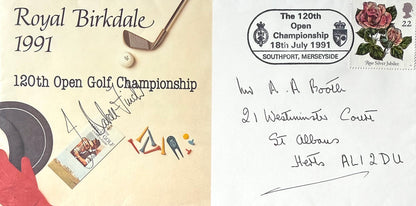 Royal Birkdale
1991
120th Open Golf Championship
Ian Baker-Finch
The 120th
Open
Championship
18th July 1991
SOUTHPORT, MERSEYSIDE
22
'Rosa Silver Jubilee'
Mr A A Booth
21 Westminster Court
St Albans
Herts AL1 2DU